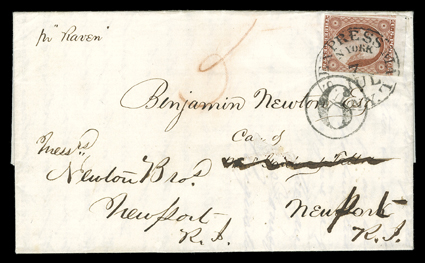 pr "Raven"
EXPRESS
N YORK
6
Benjamin Newton
Ca of
Messrs
Newton Bros
Newport
R.I.
Newport
R.I.